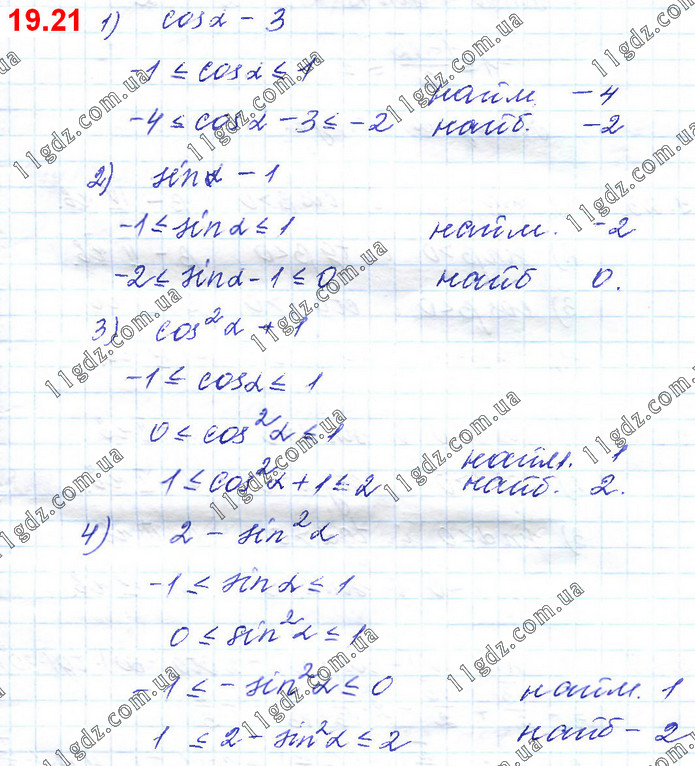 19.21 1) cosα - 3
-1 ≤ cosα ≤ 1
найм. -4
-4 ≤ cosα - 3 ≤ -2 найб. -2
2) sinα - 1
-1 ≤ sinα ≤ 1 найм. -2
-2 ≤ sinα - 1 ≤ 0 найб 0.
3) cos²α + 1
-1 ≤ cosα ≤ 1
0 ≤ cos²α ≤ 1
найм. 1
1 ≤ cos²α + 1 ≤ 2 найб. 2.
4) 2 - sin²α
-1 ≤ sinα ≤ 1
0 ≤ sin²α ≤ 1
-1 ≤ -sin²α ≤ 0 найм. 1
1 ≤ 2 - sin²α ≤ 2 найб - 2
11gdz.com.ua